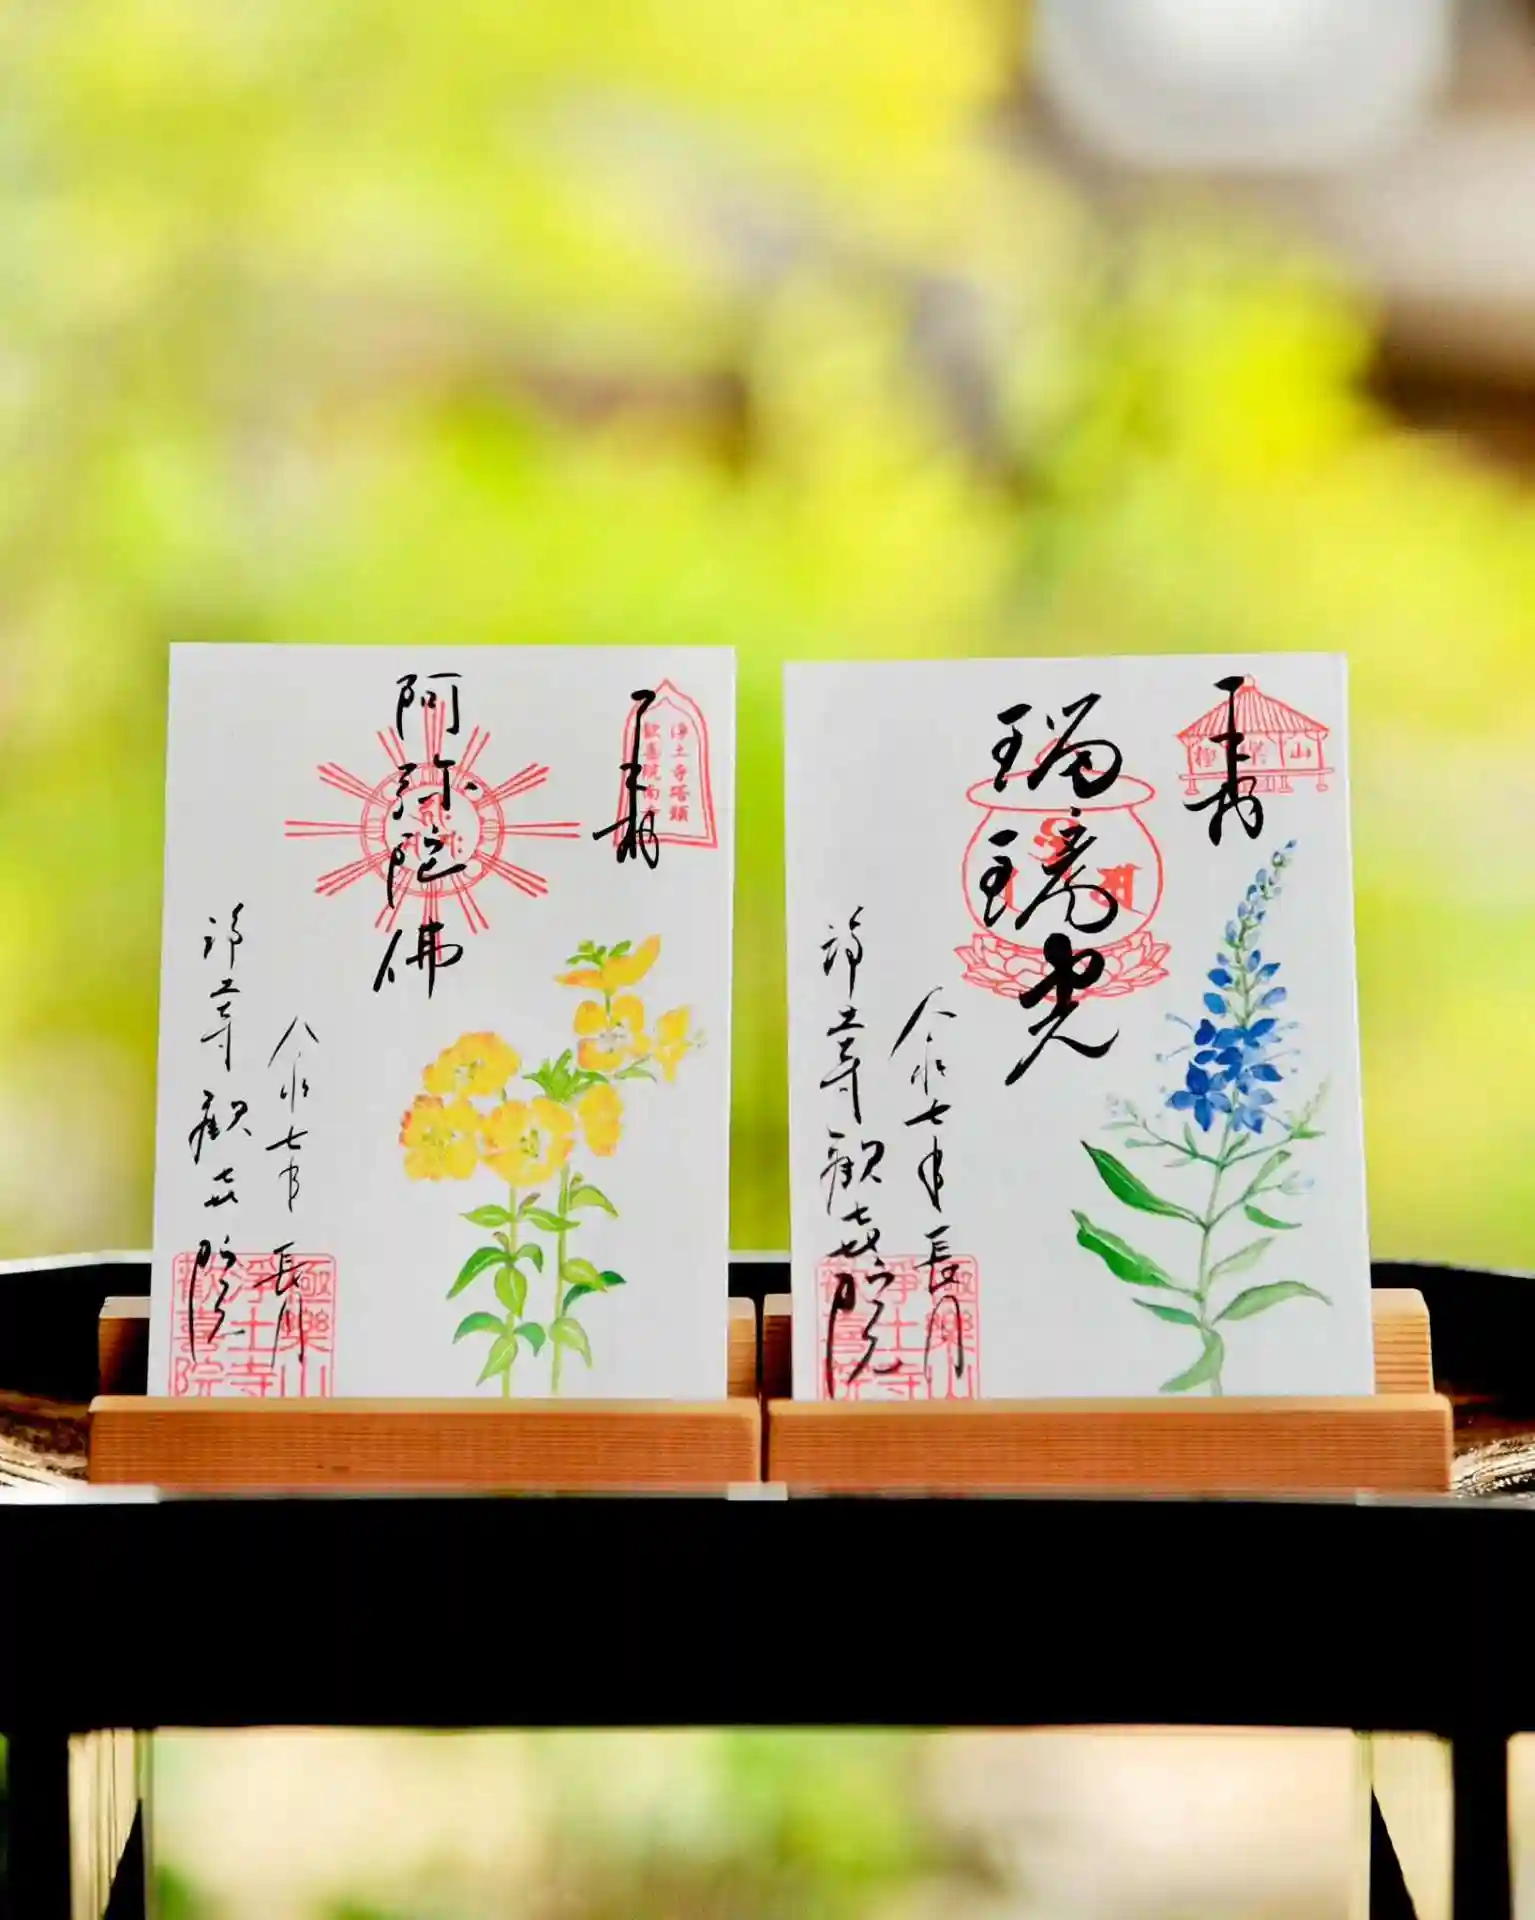 奉拝
浄土寺塔頭
歓喜院南寺
阿弥陀佛
令和七年長月
浄土寺歓喜院
極樂山
浄土寺
歡喜院
奉拝
極楽山
瑠璃光
令和七年長月
浄土寺歓喜院
極樂山
浄土寺
歡喜院